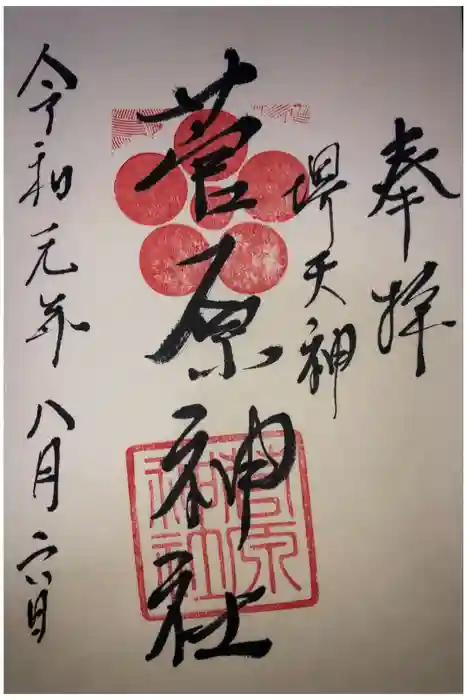 奉拝
堺天神
菅原神社
菅原神社
令和元年八月六日